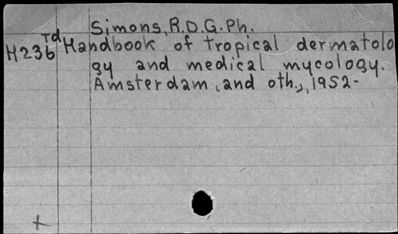 Simons, R.D.G.Ph.
Td
H236 Handbook of tropical dermatolo
gy and medical mycology.
Amsterdam, and oth., 1952-